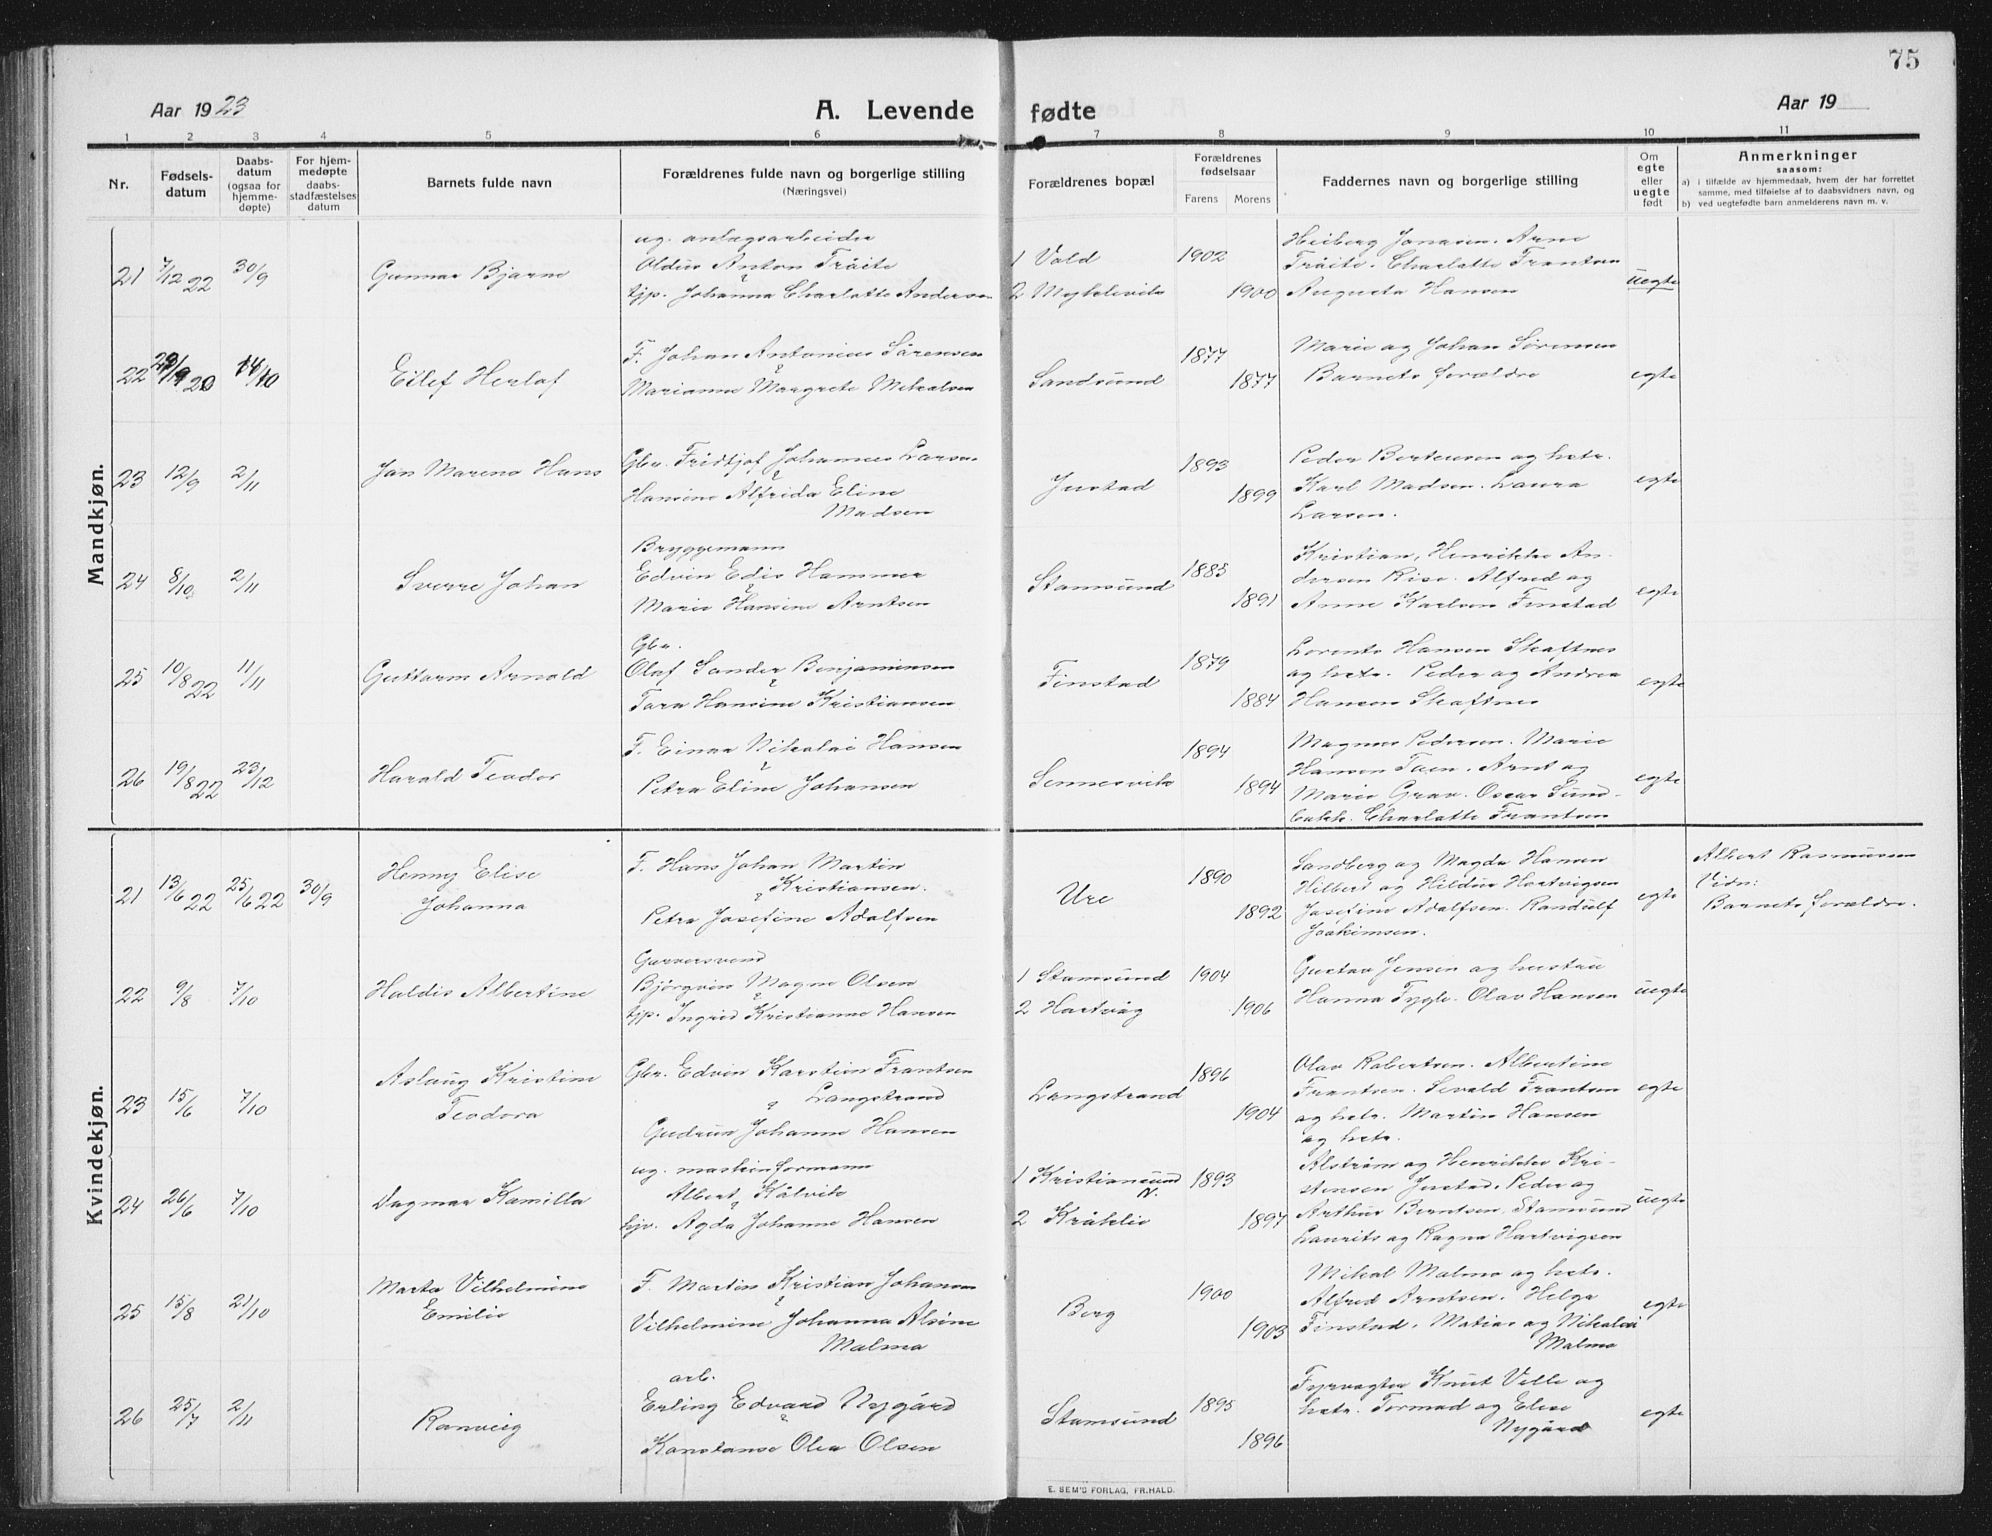 75
Aar 1923
A. Levende fødte
Aar 19
1 2 3 4 5 6 7 8 9 10 11
Nr.
Fødsels-
datum
Daabs-
datum
(ogsaa for
hjemme-
døpte)
For hjem-
medøpte
daabs-
stadfæstelses
datum
Barnets fulde navn
Forældrenes fulde navn og borgerlige stilling
(Næringsvei)
Forældrenes bopæl
Forældrenes
fødselsaar
Farens Morens
Faddernes navn og borgerlige stilling
Om
egte
eller
uegte
født
Anmerkninger
saasom:
a) i tilfælde av hjemmedaab, hvem der har forrettet
samme, med tilføielse af to daabsvidners navn, og
b) ved uegtefødte barn anmelderens navn m. v.
Mandkjøn.
21 7/12 22 30/9 Gunnar Bjarne
ug. anlægsarbeider
Oldus Anton Tråite
tjp. Johanna Charlotte Andersen
1 Vold
2 Myklevik
1902 1900
Heiberg Jonasen. Arne
Tråite. Charlotte Frantsen
Augusta Hansen
uegte
22 20 14/10 Eilef Herlof
F. Johan Antonius Sørensen
Marianne Margrete Mikalsen
Sandsund
1877 1877
Marie og Johan Sørensen
Barnets forældre
egte
23 12/9 2/11 Jan Mareno Hans
Gbr. Fridtjof Johannes Larsen
Hansine Alfrida Eline
Madsen
Justad
1893 1899
Peder Berteussen og hstr.
Karl Madsen. Laura
Larsen.
egte
24 8/10 2/11 Sverre Johan
Bryggemann
Edvin Edis Hammer
Marie Hansine Arntsen
Stamsund
1885 1891
Kristian, Henrikke An-
dersen Rise. Alfred og
Anne Karlsen Finstad
egte
25 10/8 22 11/11 Guttorm Arnold
Gbr.
Olaf Sander Benjaminsen
Tora Hansine Kristiansen
Finstad
1879 1884
Lorents Hansen Skaftnes
og hstr. Peder og Andrea
Hansen Skaftnes
egte
26 19/8 22 23/12 Harald Teodor
F. Einar Nikolai Hansen
Petra Eline Johansen
Sennesvik
1894 1894
Magnus Pedersen. Marie
Hansen Toen. Arnt og
Marie Grav. Oscar Sund-
bakk. Charlotte Frantsen
egte
Kvindekjøn.
21 13/6 22 25/6 22 30/9 Henny Elise
Johanna
F. Hans Johan Martin
Kristiansen.
Petra Josefine Adolfsen
Ure
1890 1892
Sandberg og Magda Hansen
Hilbert og Hildur Hartvigsen
Josefine Adolfsen. Randulf
Joakimsen.
egte
Albert Rasmussen
Vidn:
Barnets forældre.
22 9/8 7/10 Haldis Albertine
Garversvend
Bjørgvin Magne Olsen
tjp. Ingrid Kristianne Hansen
1 Stamsund
2 Hartvåg
1904 1906
Gustav Jensen og hustru
Hanna Fygle. Olav Hansen
uegte
23 15/6 7/10 Aslaug Kristine
Teodora
Gbr. Edvin Karstein Frantsen
Langstrand
Gudrun Johanne Hansen
Langstrand
1896 1904
Olav Robertsen. Albertine
Frantsen. Sevald Frantsen
og hstr. Martin Hansen
og hstr.
egte
24 26/6 7/10 Dagmar Kamilla
ug. maskinformann
Albert Kålvik
hjv. Agda Johanne Hansen
1 Kristiansund
N.
2 Kråklio
1893 1897
Alstrøm og Henrikke Kri-
stensen Justad. Peder og
Arthur Berntsen, Stamsund
Laurits og Ragna Hartvigsen
uegte
25 15/8 21/10 Marta Vilhelmine
Emilie
F. Martin Kristian Johansen
Vilhelmine Johanna Alsine
Malmo
Berg
1900 1903
Mikal Malmo og hstr.
Alfred Arntsen. Helga
Finstad. Matias og Nikolai
Malmo
egte
26 25/7 2/11 Ranveig
arb.
Erling Edvard Nygård
Konstanse Olea Olsen
Stamsund
1895 1896
Fyrvogter Knut Velle og
hstr. Tormod og Elise
Nygård
egte
E. SEM'S FORLAG, FR.HALD.